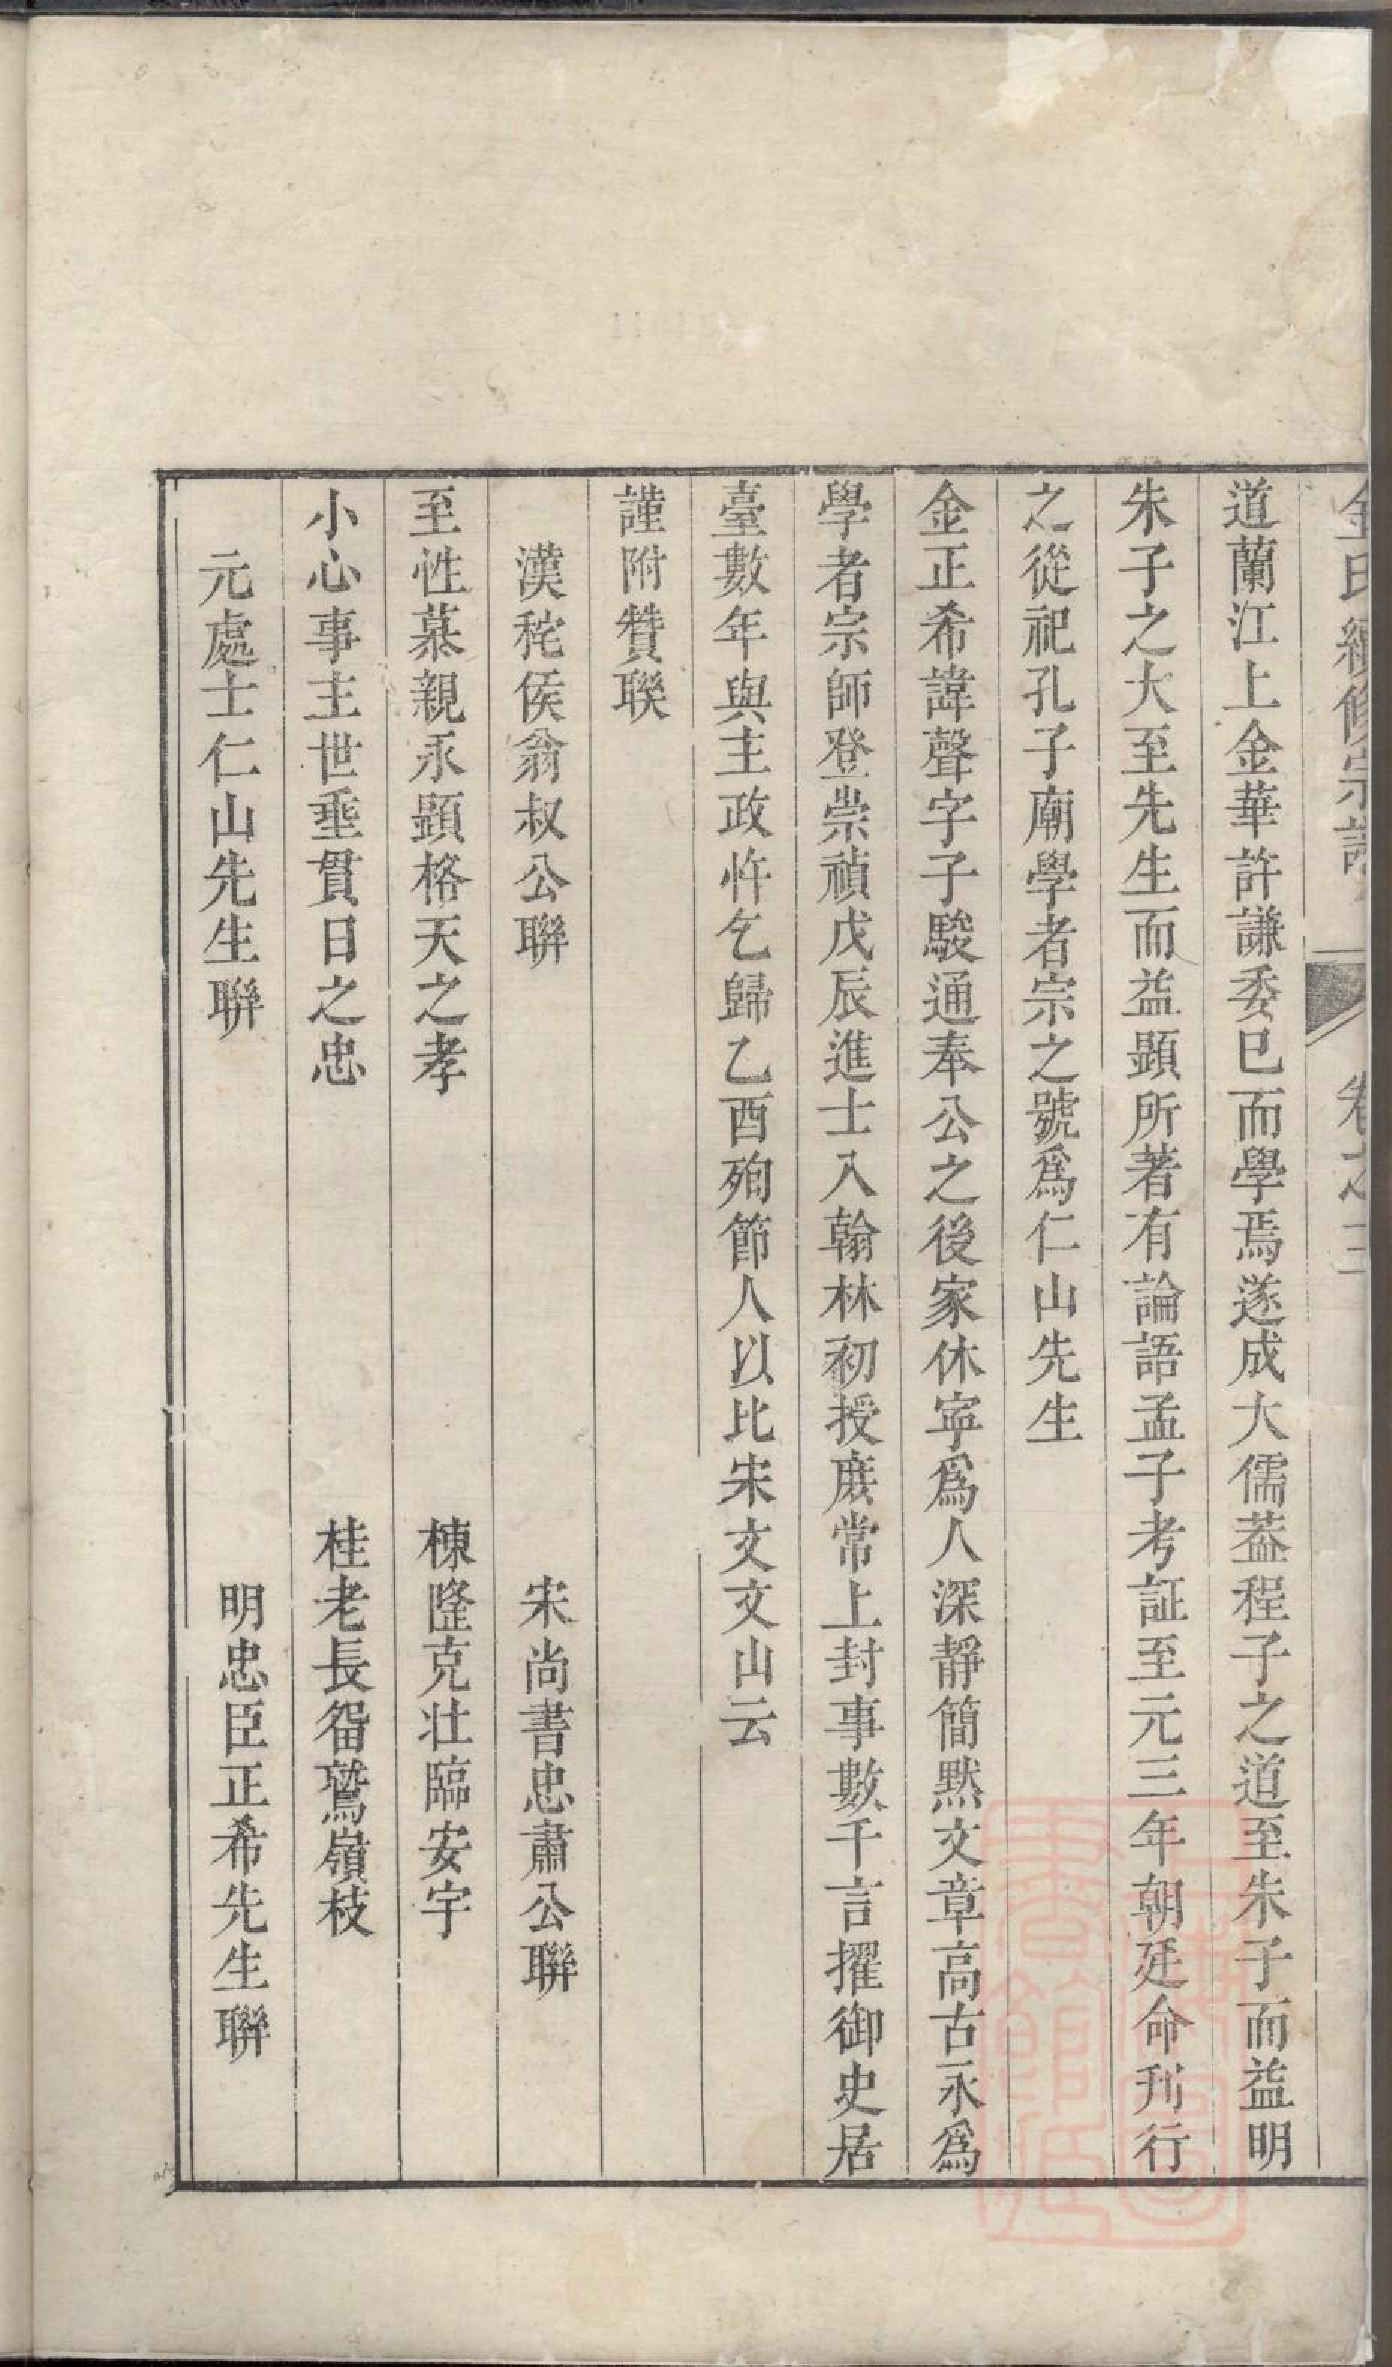 金氏續修宗譜 卷之三
道蘭江上金華許謙委已而學焉遂成大儒葢程子之道至朱子而益明
朱子之大至先生而益顯所著有論語孟子考証至元三年朝廷命刋行
之從祀孔子廟學者宗之號爲仁山先生
金正希諱聲字子駿通奉公之後家休寧爲人深靜簡黙文章高古永爲
學者宗師登崇禎戊辰進士入翰林初授庶常上封事數千言擢御史居
臺數年與主政忤乞歸乙酉殉節人以比宋文文山云
謹附贊聨
漢秺侯翁叔公聨 宋尚書忠肅公聨
至性慕親永顯格天之孝 棟隆克壯臨安宇
小心事主世垂貫日之忠 桂老長留鷲嶺枝
元處士仁山先生聨 明忠臣正希先生聨